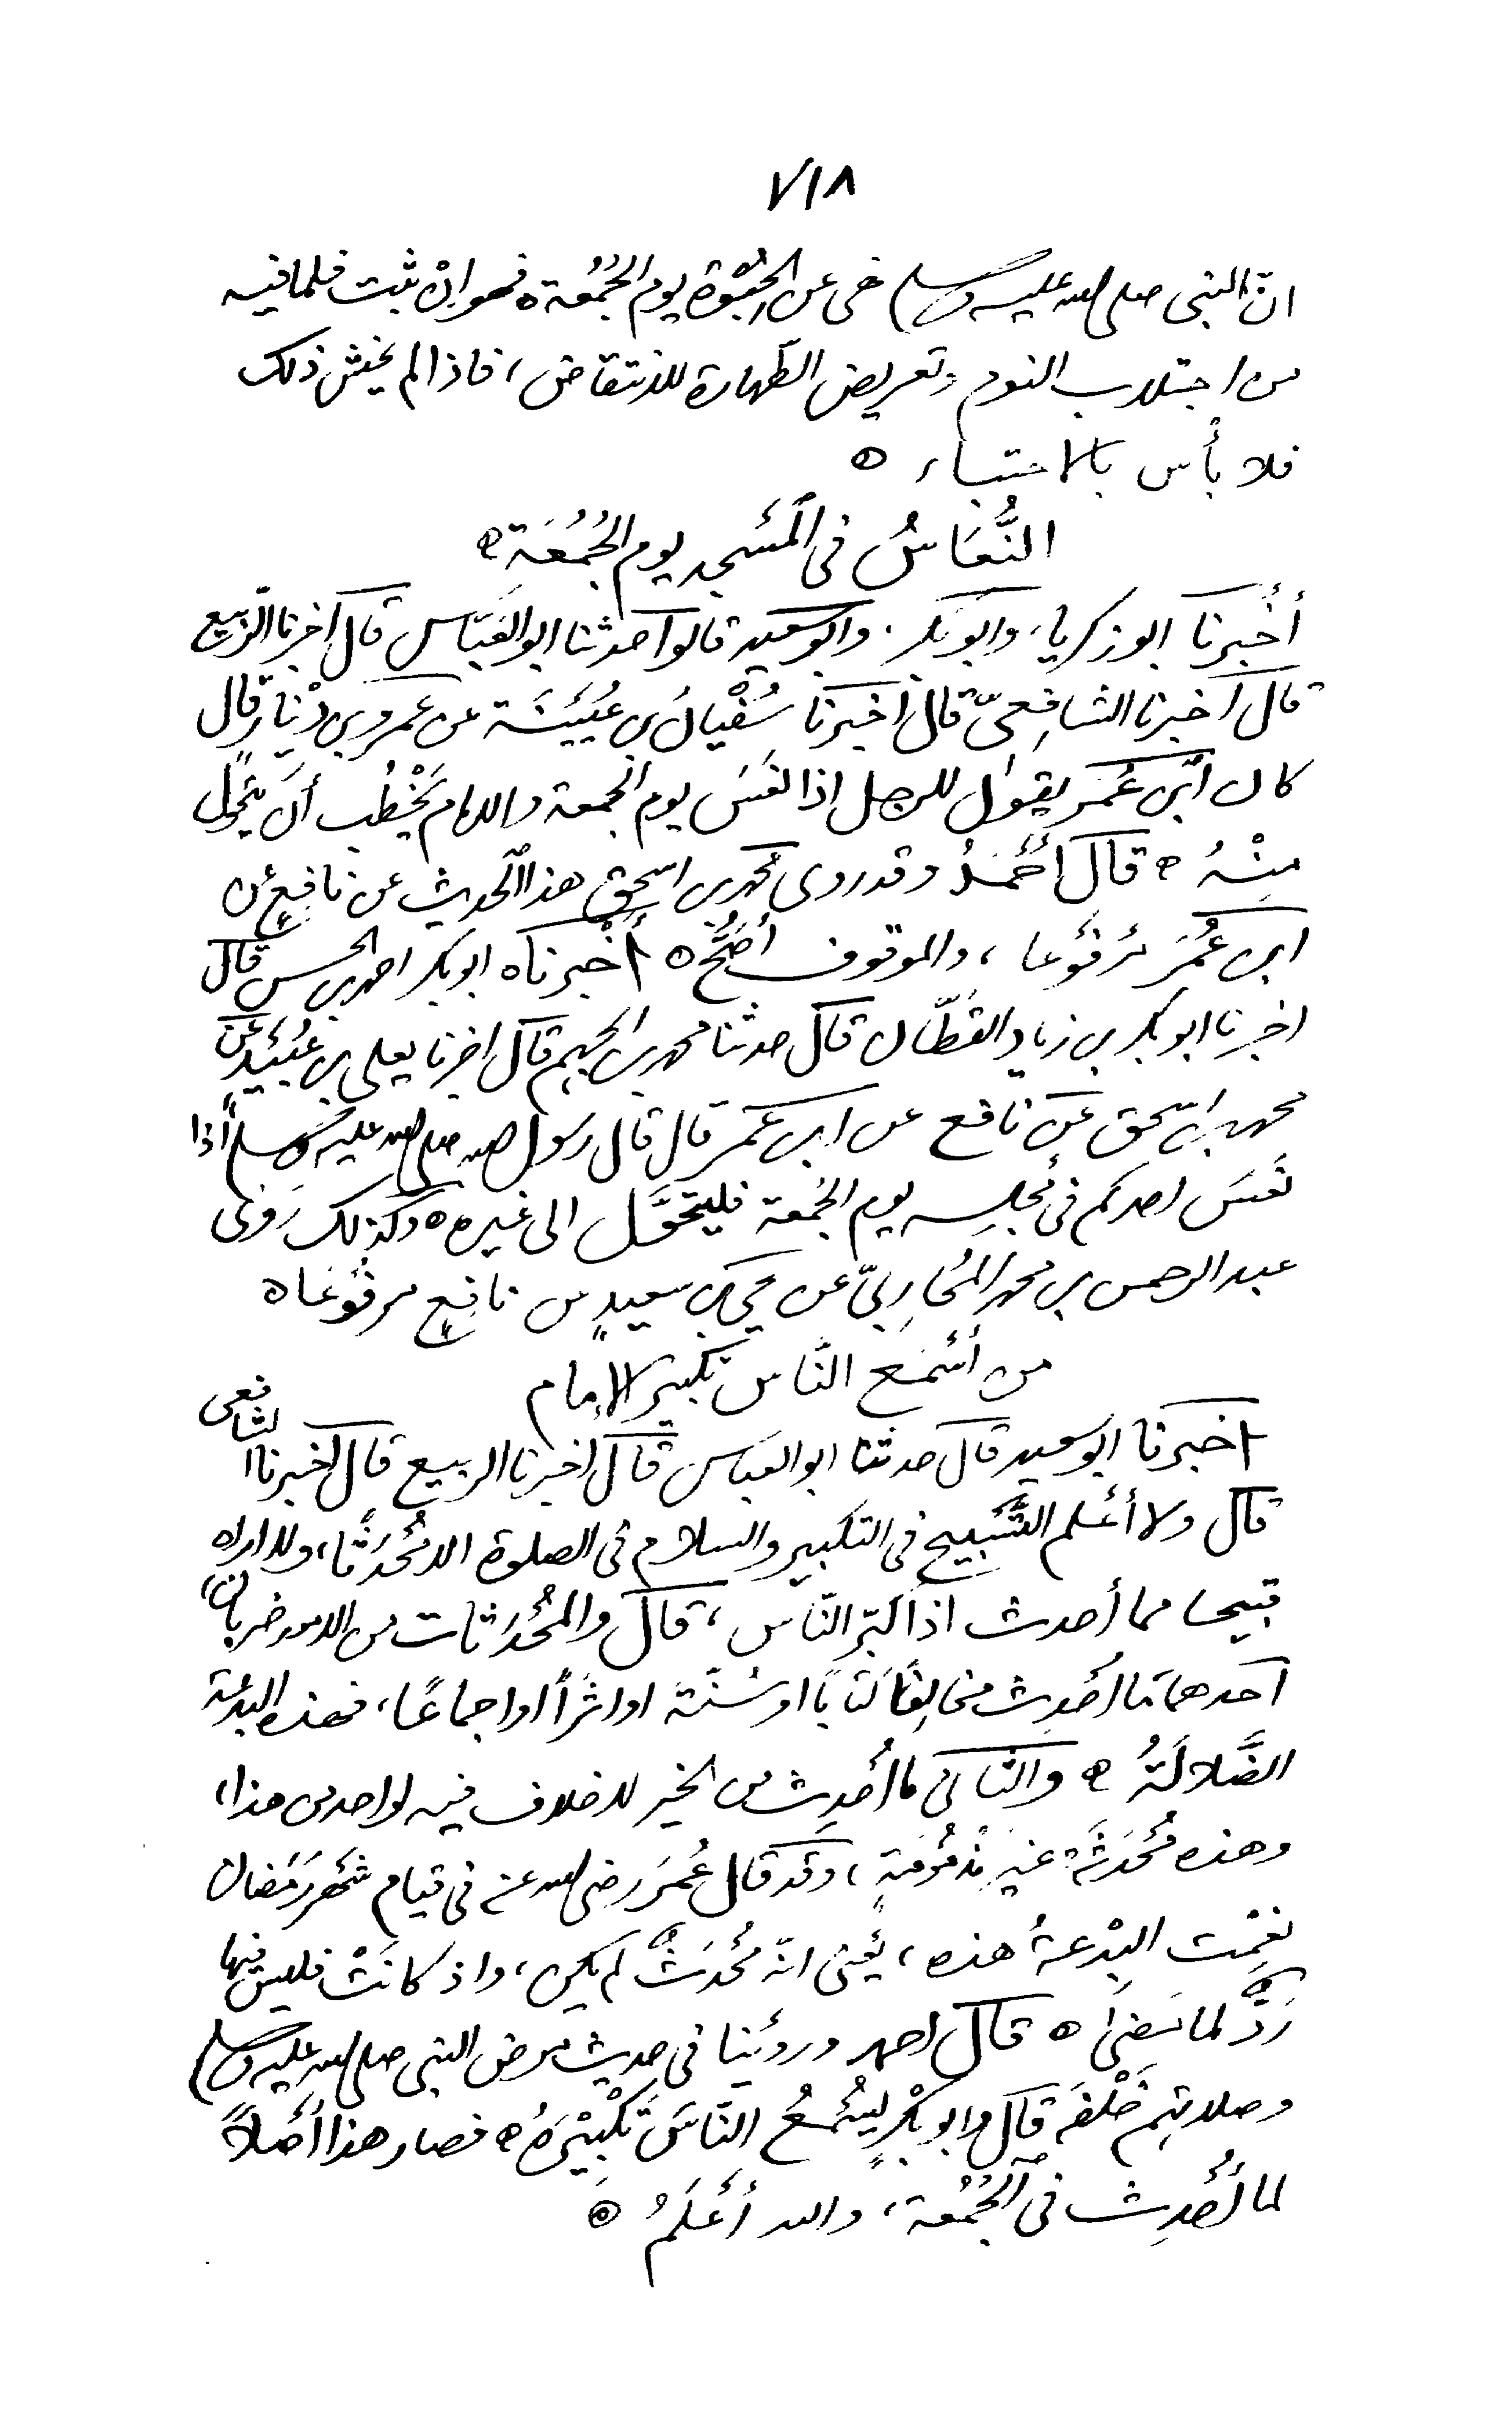 ٧١٨
انّ النبى صلى الله عليه وسلم نهى عن الحُبْوة يوم الجُمُعة ه فهو إنْ ثبت فلما فيه
من اجتلاب النوم وتعريض الطّهارة للانتقاض، فاذا لم يخش ذلك
فلا بأس بالاحتباء ه
النُّعَاسُ فى المَسْجد يوم الجُمُعَةِ ه
أَخْبرنا ابو زكريا، وابو بكر. وابو سعيد قالوا حدثنا ابو العَبّاس قال اخبرنا الرّبيع
قال اخبرنا الشافِعىّ قال اخبرنا سُفْيانُ بن عُيَيْنَة عن عمرو بن دْينارٍ قال
كان ابن عُمَر يقول للرجل اذا نعَسَ يوم الجمعة والامام يَخْطُب أنْ يتحَّول
مِنْهُ ه قال أحْمَدُ وقد روى محمد بن اسحق هذا الحديث عن نافِعٍ عن
ابن عُمَرَ مَرْفُوعا، والموقوف أصَحُّ ه أخْبرناه ابو بكر احمد بن الحسن قال
اخبرنا ابو بكر بن زياد القطّان قال حدثنا محمد بن الجهم قال اخبرنا يعلى بن عُبَيْدٍ عن
محمد بن اسحق عن نافع عن ابن عمَر قال قال رسول الله صلى الله عليه وسلم اذا
نَعَسَ احدكم فى مَجْلِسه يوم الجُمعة فليتحَوَّل الى غيره ه وكذلك رَوَى
عبد الرحمن بن محمد المُحَارِبىّ عن يحيى بن سعيدٍ عن نافِعٍ مرفُوعًا ه
من أَسْمَعَ النَّاس تكبير الإمام
اخبرنا ابو سعيد قال حدثنا ابو العباس قال اخبرنا الربيع قال اخبرنا الشافعى
قال ولا أعْلم التَّسْبِيح فى التكبير والسلام فى الصلوة الا مُحْدَثًا، ولا اراه
قبيحا مما أحدث اذا كَبَّر النّاس، قال والمُحْدَثات من الامور ضربانِ،
أحدهما ما أُحْدِث مخالِفًا كتابًا او سُنَّة او اثرًا او اجماعًا، فهذه البدعة
الضَّلالَةُ ه والثّانى ما أُحْدِث من الخير لا خلاف فيه لواحد من هذا،
وهذه مُحْدَثَة غير مَذْمُوْمَةٍ، وقد قال عُمَر رضى الله عنه فى قيام شهْر رمَضان
نعِمْت البِدْعة هذه، يَعْنى انّه مُحْدَثٌ لم يكن، واذ كانَتْ فليس فيها
رَدٌّ لما مَضىَ ه قال احمد ورويْنا فى حديث مرض النبى صلى الله عليه وسلم
وصلاتِهِم خَلْفَه قال وابو بكْرٍ يُسْمعُ النّاسَ تَكْبِيْرَهُ ه فصار هذا أصْلاً
لما أُحْدِث فى الجُمُعة، والله أَعْلمُ ه